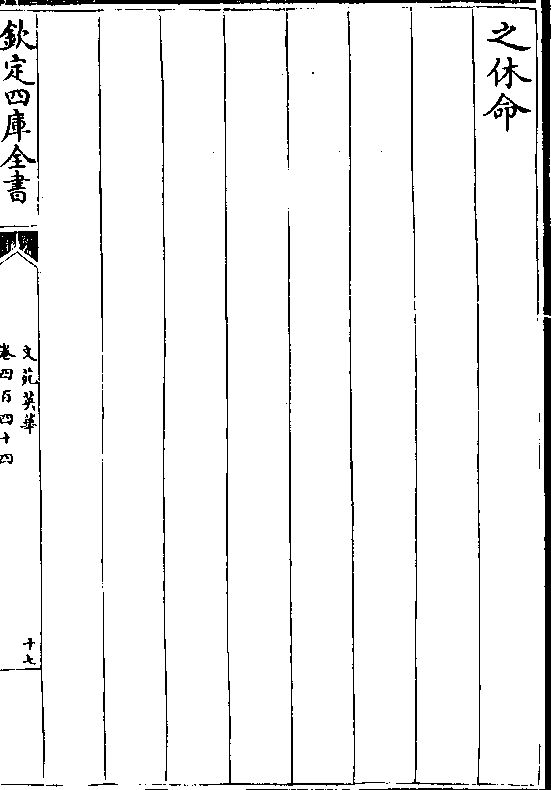 之休命
欽定四庫全書
文苑英華
卷四百四十四
十七